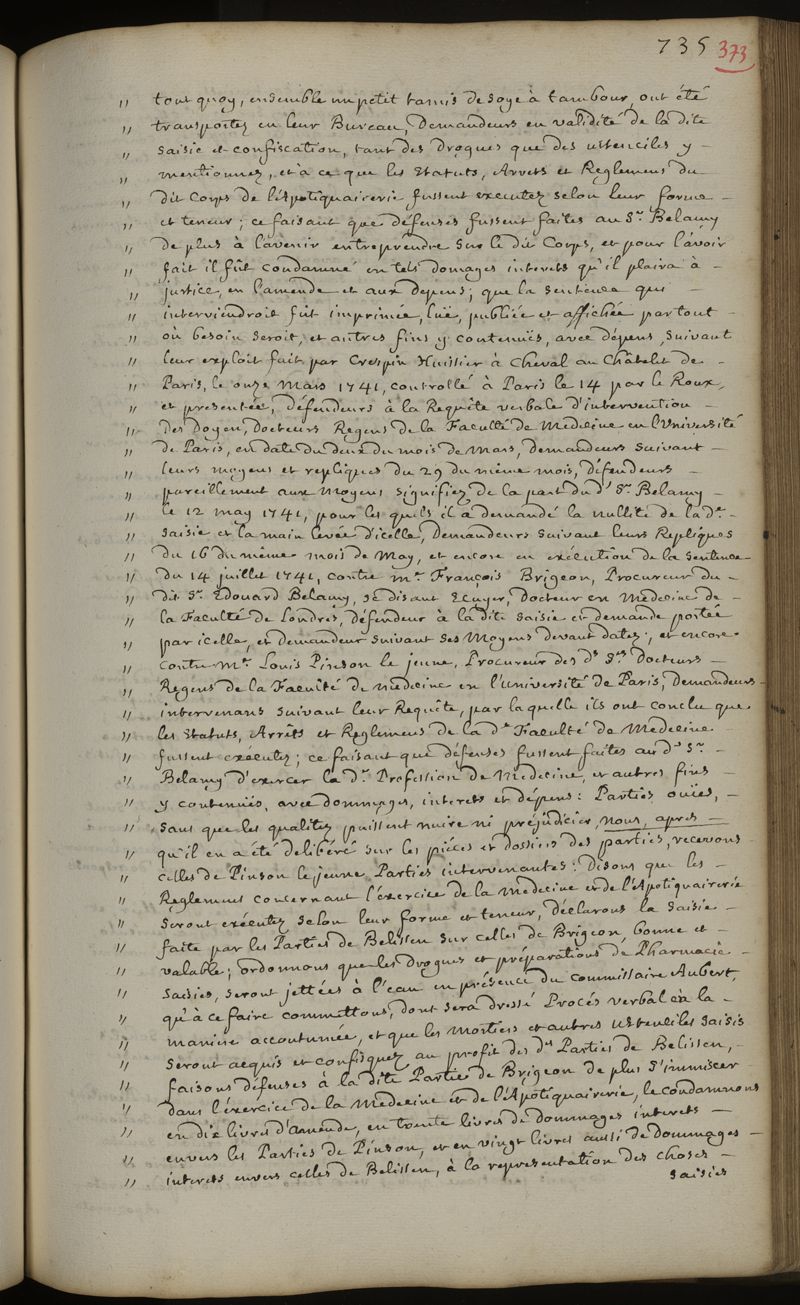 735 373
" tout quoy, ensemble un petit tamis de soye à tambour, ont été
" transportez en leur Bureau, Demandeurs en validité de la dite
" saisie et confiscation, tant des Drogues que des ustenciles y –
" mentionnez, et à ce que les Statuts, Arrets et Reglemens du
" dit Corps de l'Apotiquairerie fussent executez selon leur forme –
" et teneur ; ce faisant que défenses fussent faites au Sr. Belamy
" de plus à l'avenir entreprendre sur le dit Corps, et pour l'avoir
" fait il fût condamné en tels domages interets qu'il plaira à –
" justice, en l'amende et aux depens ; que la sentence qui –
" interviendroit fût imprimée, luë, publiée et affichée partout –
" où besoin seroit, et autres fins y contenuës, avec dépens, suivant
" leur exploit fait par Crespin Huissier à Cheval au Châtelet de –
" Paris, le onze Mars 1741, controllé à Paris le 14 par le Roux,
" et presentée, défendeurs à la Requête verbale d'intervention –
" des Doyen, Docteurs Regens de la Faculté de Médecine en l'Université
" de Paris, en date du deux du mois de Mars, Demandeurs suivant –
" leurs moyens et repliques du 29 du même mois, défendeurs –
" pareillement aux Moyens signifiez de la part du d' Sr. Belamy –
" le 12 may 1741, pour lesquels il a demandé la nullité de la de. –
" saisie et la main levée d'icelle, Demandeurs suivant leurs Repliques
" du 16 du même mois de May, et encore en exécution de la Sentence
" du 14 juillet 1741, contre me. François Brigeon, Procureur du –
" dit Sr. Edouard Belamy, se disant Ecuyer, Docteur en Médecine de –
" la Faculté de Londres, défendeur à la dite saisie et demande portée
" par icelle, et demandeur suivant ses Moyens devant datez ; et encore.
" contre Me. Louis Pinson le jeune, Procureur des ds Srs Docteurs –
" Regens de la Faculté de Medecine en l'Université de Paris, demandeurs –
" intervenans suivant leur Requête, par laquelle ils ont conclu que
" les Statuts, Arrêts et Reglemens de la de Faculté de Medecine
" fussent exécutez ; ce faisant que défenses fussent faites au d' Sr. –
" Belamy d'exercer la de. Profession de Medecine, et autres fins –
" y contenuës, avec dommages, interets et dépens : Parties ouïes, –
" sans que les qualitez puissent nuire ni préjudicier, nous, apres –
" qu'il en a été deliberé sur les piéces et dossiers des parties, recevons
" celles de Pinson le jeune Parties intervenantes : Disons que les –
" Reglemens concernant l'éxercice de la Medecine et de l'Apotiquairerie
" seront exécutez selon leur forme et teneur, déclarons la saisie –
" faite par les Parties de Belissen sur celles de Brigeon, bonne et –
" valable ; ordonnons que les drogues et préparations de Pharmacie –
" saisies, seront jettées à l'eau en présence du Commissaire Aubert,
" qu'à ce faire commettons, dont sera dressé Procés verbal en la –
" maniere accoutumée, et que les Mortiers et autres Ustenciles saisis
" seront acquis et confisquez au profit des ds Parties de Belissen, –
" faisons défenses à la dite Partie de Brigeon de plus s'immiscer
" dans l'éxercice de la Medecine et de l'Apotiquairerie, le condamnons
" en dix livres d'amende, en trente livres de dommages interets –
" envers les Parties de Pinson, et en vingt livres aussi de dommages –
" interets envers celles de Belissen, à la representation des choses –
saisies